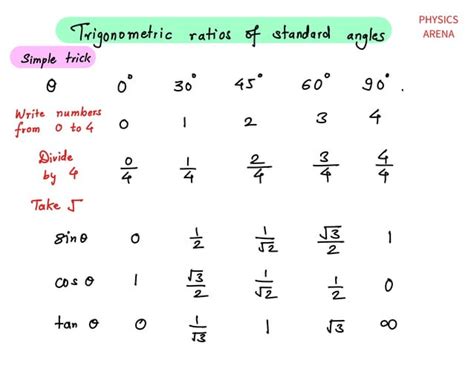 PHYSICS
ARENA
Trigonometric ratios of standard angles
Simple trick
θ 0° 30° 45° 60° 90° .
Write numbers
from 0 to 4 0 1 2 3 4
Divide
by 4 0/4 1/4 2/4 3/4 4/4
Take √
sinθ 0 1/2 1/√2 √3/2 1
cos θ 1 √3/2 1/√2 1/2 0
tan θ 0 1/√3 1 √3 ∞